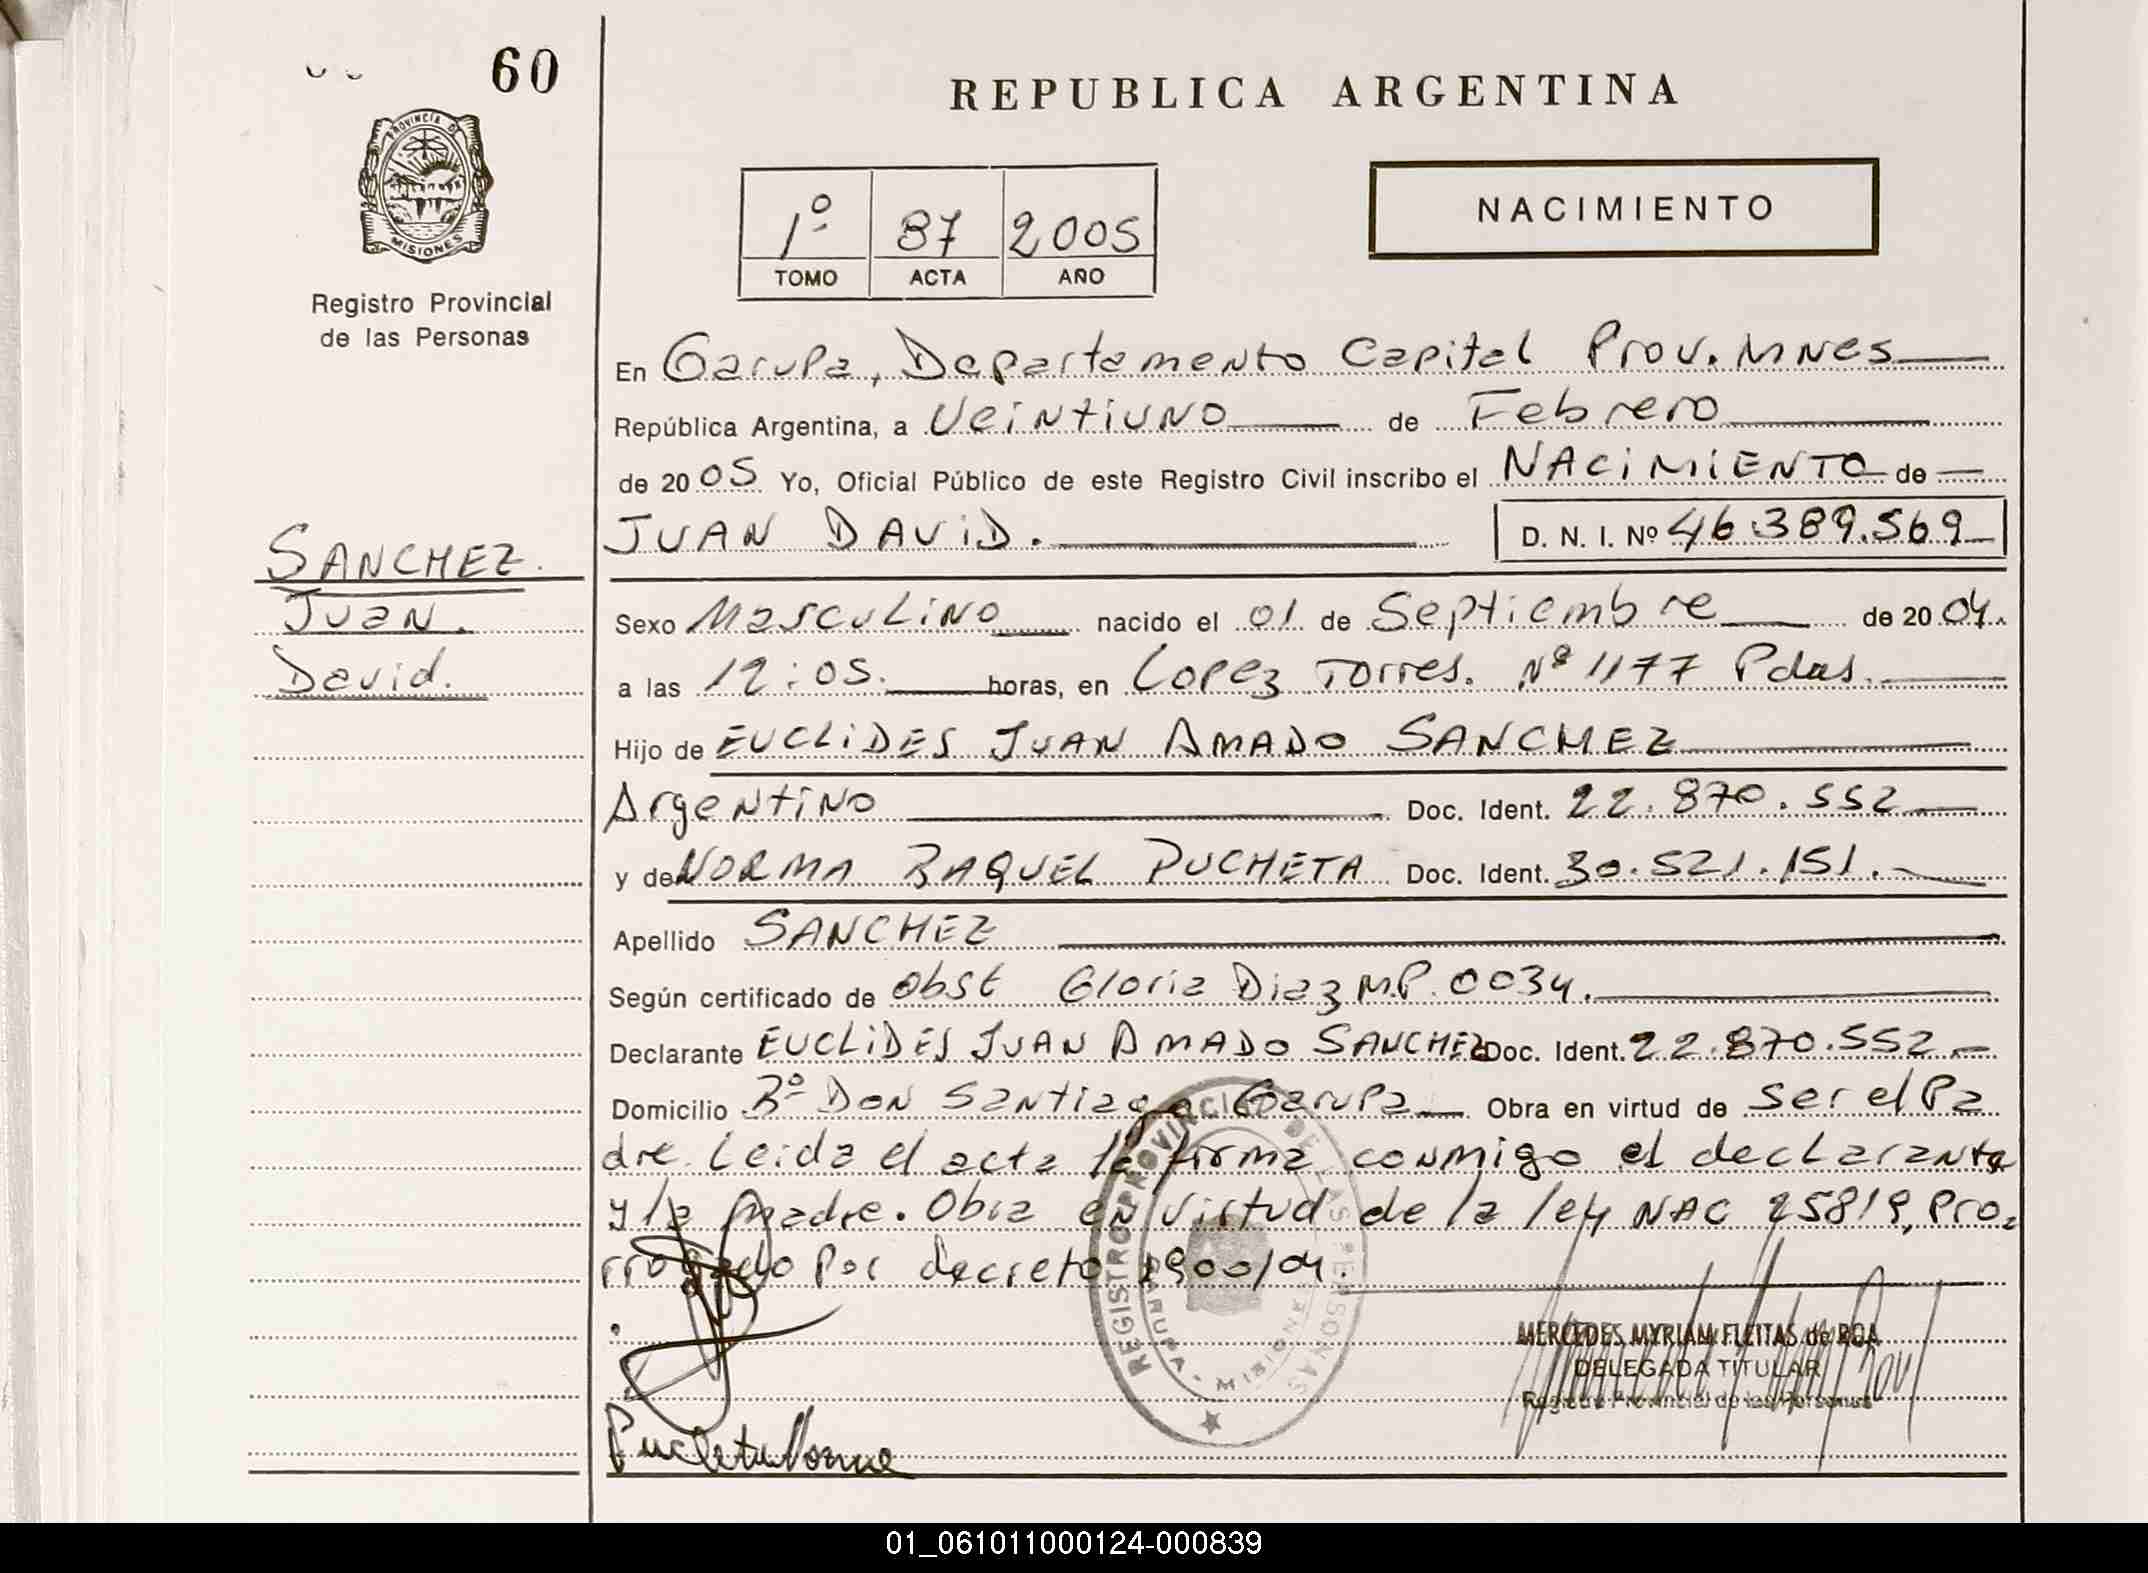 60
PROVINCIA DE
MISIONES
Registro Provincial
de las Personas
REPUBLICA ARGENTINA
1º 87 2005
TOMO ACTA AÑO
NACIMIENTO
En Garupa, Departamento Capital Prov. Mnes
República Argentina, a Veintiuno de Febrero
de 2005 Yo, Oficial Público de este Registro Civil inscribo el NACIMIENTO de
JUAN DAVID. D. N. I. Nº 46.389.569
SANCHEZ.
Juan.
David.
Sexo Masculino nacido el 01 de Septiembre de 2004.
a las 12:05. horas, en Lopez Torres. Nº 1177 Pdas.
Hijo de EUCLIDES JUAN AMADO SANCHEZ
Argentino Doc. Ident. 22.870.552
y de NORMA RAQUEL PUCHETA Doc. Ident. 30.521.151.
Apellido SANCHEZ
Según certificado de Obst Gloria Diaz M.P. 0034.
Declarante EUCLIDES JUAN AMADO SANCHEZ Doc. Ident. 22.870.552
Domicilio Bº Don Santiago Garupa Obra en virtud de ser el Pa
dre. Leida el acta la firma conmigo el declarante
y la madre. Obra en virtud de la ley NAC 25819, Pro
rrogado por decreto 1900/04.
REGISTRO PROVINCIAL DE LAS PERSONAS
GARUPA - MISIONES
MERCEDES MYRIAM FLEITAS de ROA
DELEGADA TITULAR
Registro Provincial de las Personas
Pucheta Norma
01_061011000124-000839